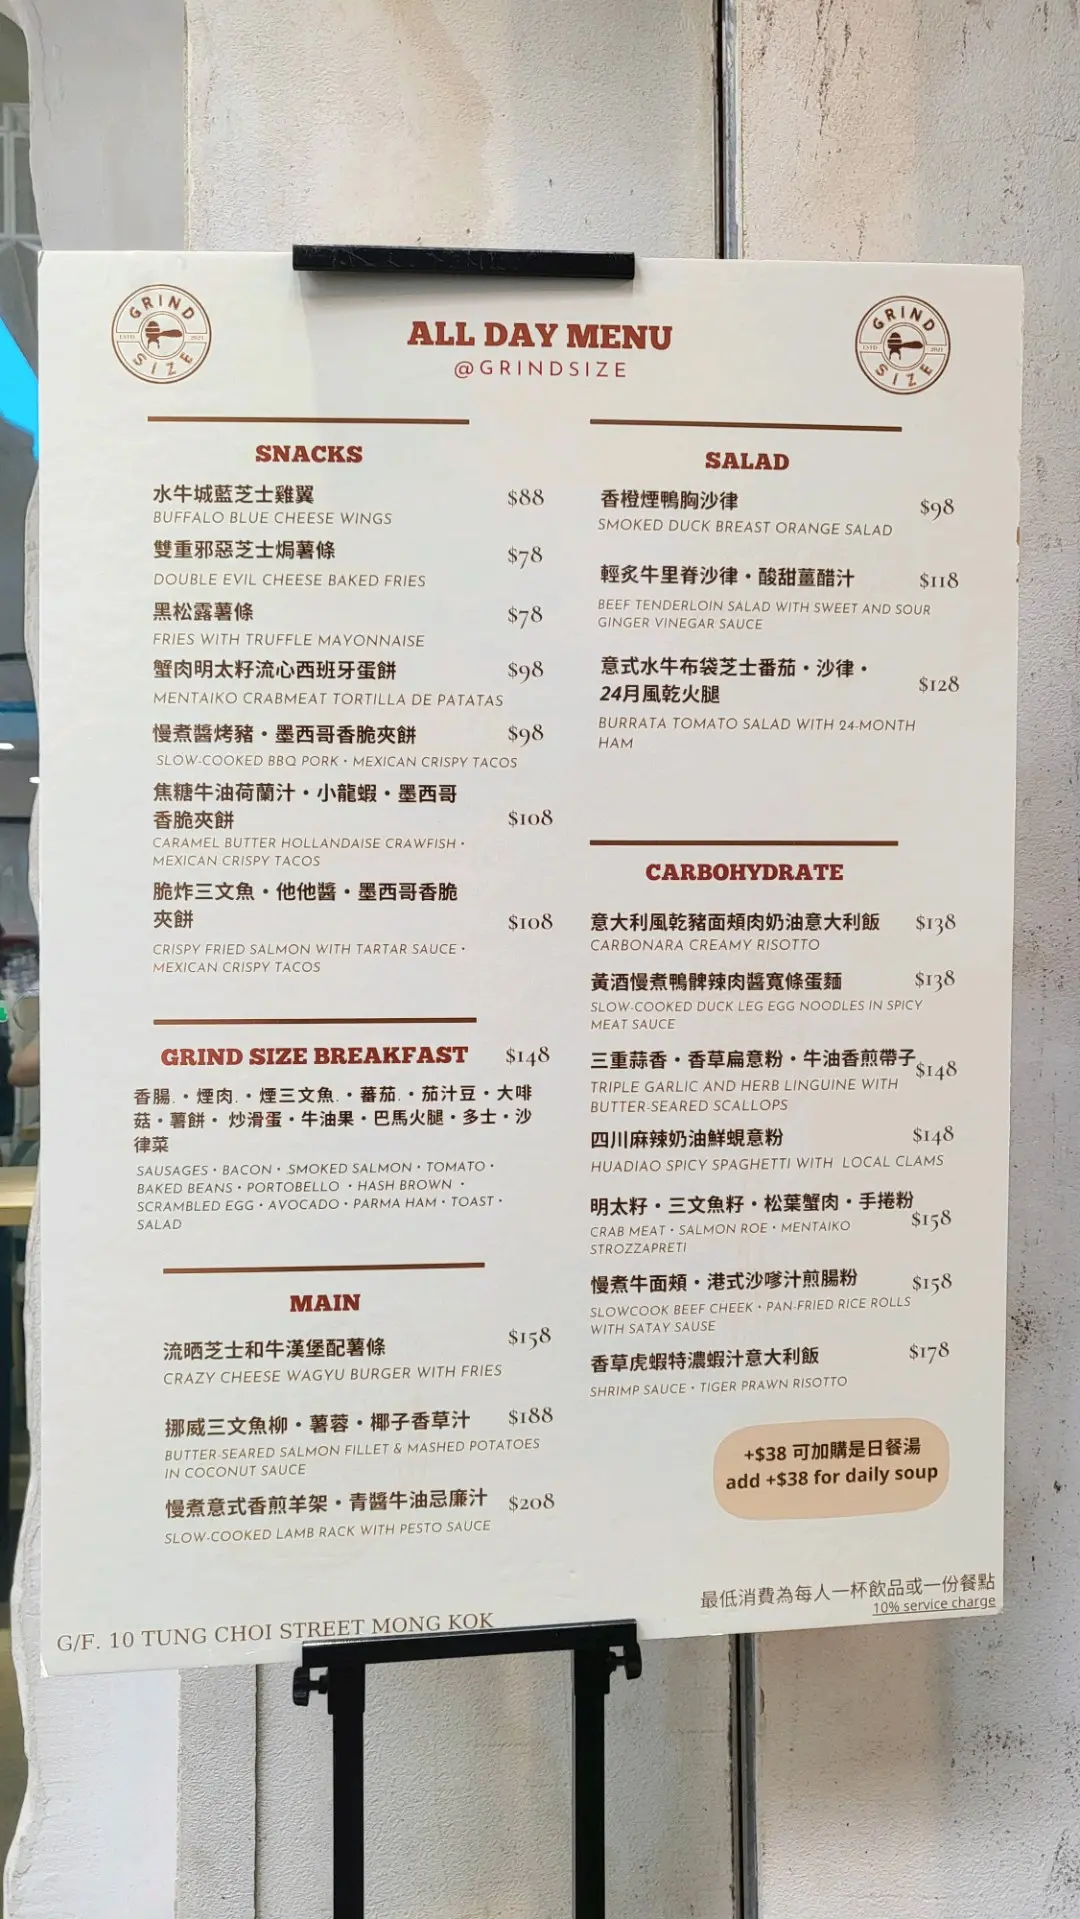 GRIND
ESTD. 2021
SIZE
ALL DAY MENU
@GRINDSIZE
GRIND
ESTD. 2021
SIZE
SNACKS
水牛城藍芝士雞翼 $88
BUFFALO BLUE CHEESE WINGS
雙重邪惡芝士焗薯條 $78
DOUBLE EVIL CHEESE BAKED FRIES
黑松露薯條 $78
FRIES WITH TRUFFLE MAYONNAISE
蟹肉明太籽流心西班牙蛋餅 $98
MENTAIKO CRABMEAT TORTILLA DE PATATAS
慢煮醬烤豬・墨西哥香脆夾餅 $98
SLOW-COOKED BBQ PORK・MEXICAN CRISPY TACOS
焦糖牛油荷蘭汁・小龍蝦・墨西哥
香脆夾餅 $108
CARAMEL BUTTER HOLLANDAISE CRAWFISH・
MEXICAN CRISPY TACOS
脆炸三文魚・他他醬・墨西哥香脆
夾餅 $108
CRISPY FRIED SALMON WITH TARTAR SAUCE・
MEXICAN CRISPY TACOS
GRIND SIZE BREAKFAST $148
香腸.・煙肉.・煙三文魚.・蕃茄.・茄汁豆・大啡
菇・薯餅・ 炒滑蛋・牛油果・巴馬火腿・多士・沙
律菜
SAUSAGES・BACON・.SMOKED SALMON・TOMATO・
BAKED BEANS・PORTOBELLO ・HASH BROWN ・
SCRAMBLED EGG・AVOCADO・PARMA HAM・TOAST・
SALAD
MAIN
流晒芝士和牛漢堡配薯條 $158
CRAZY CHEESE WAGYU BURGER WITH FRIES
挪威三文魚柳・薯蓉・椰子香草汁 $188
BUTTER-SEARED SALMON FILLET & MASHED POTATOES
IN COCONUT SAUCE
慢煮意式香煎羊架・青醬牛油忌廉汁 $208
SLOW-COOKED LAMB RACK WITH PESTO SAUCE
G/F. 10 TUNG CHOI STREET MONG KOK
SALAD
香橙煙鴨胸沙律 $98
SMOKED DUCK BREAST ORANGE SALAD
輕炙牛里脊沙律・酸甜薑醋汁 $118
BEEF TENDERLOIN SALAD WITH SWEET AND SOUR
GINGER VINEGAR SAUCE
意式水牛布袋芝士番茄・沙律・
24月風乾火腿 $128
BURRATA TOMATO SALAD WITH 24-MONTH
HAM
CARBOHYDRATE
意大利風乾豬面頰肉奶油意大利飯 $138
CARBONARA CREAMY RISOTTO
黃酒慢煮鴨髀辣肉醬寬條蛋麵 $138
SLOW-COOKED DUCK LEG EGG NOODLES IN SPICY
MEAT SAUCE
三重蒜香・香草扁意粉・牛油香煎帶子 $148
TRIPLE GARLIC AND HERB LINGUINE WITH
BUTTER-SEARED SCALLOPS
四川麻辣奶油鮮蜆意粉 $148
HUADIAO SPICY SPAGHETTI WITH LOCAL CLAMS
明太籽・三文魚籽・松葉蟹肉・手捲粉 $158
CRAB MEAT・SALMON ROE・MENTAIKO
STROZZAPRETI
慢煮牛面頰・港式沙嗲汁煎腸粉 $158
SLOWCOOK BEEF CHEEK・PAN-FRIED RICE ROLLS
WITH SATAY SAUSE
香草虎蝦特濃蝦汁意大利飯 $178
SHRIMP SAUCE・TIGER PRAWN RISOTTO
+$38 可加購是日餐湯
add +$38 for daily soup
最低消費為每人一杯飲品或一份餐點
10% service charge